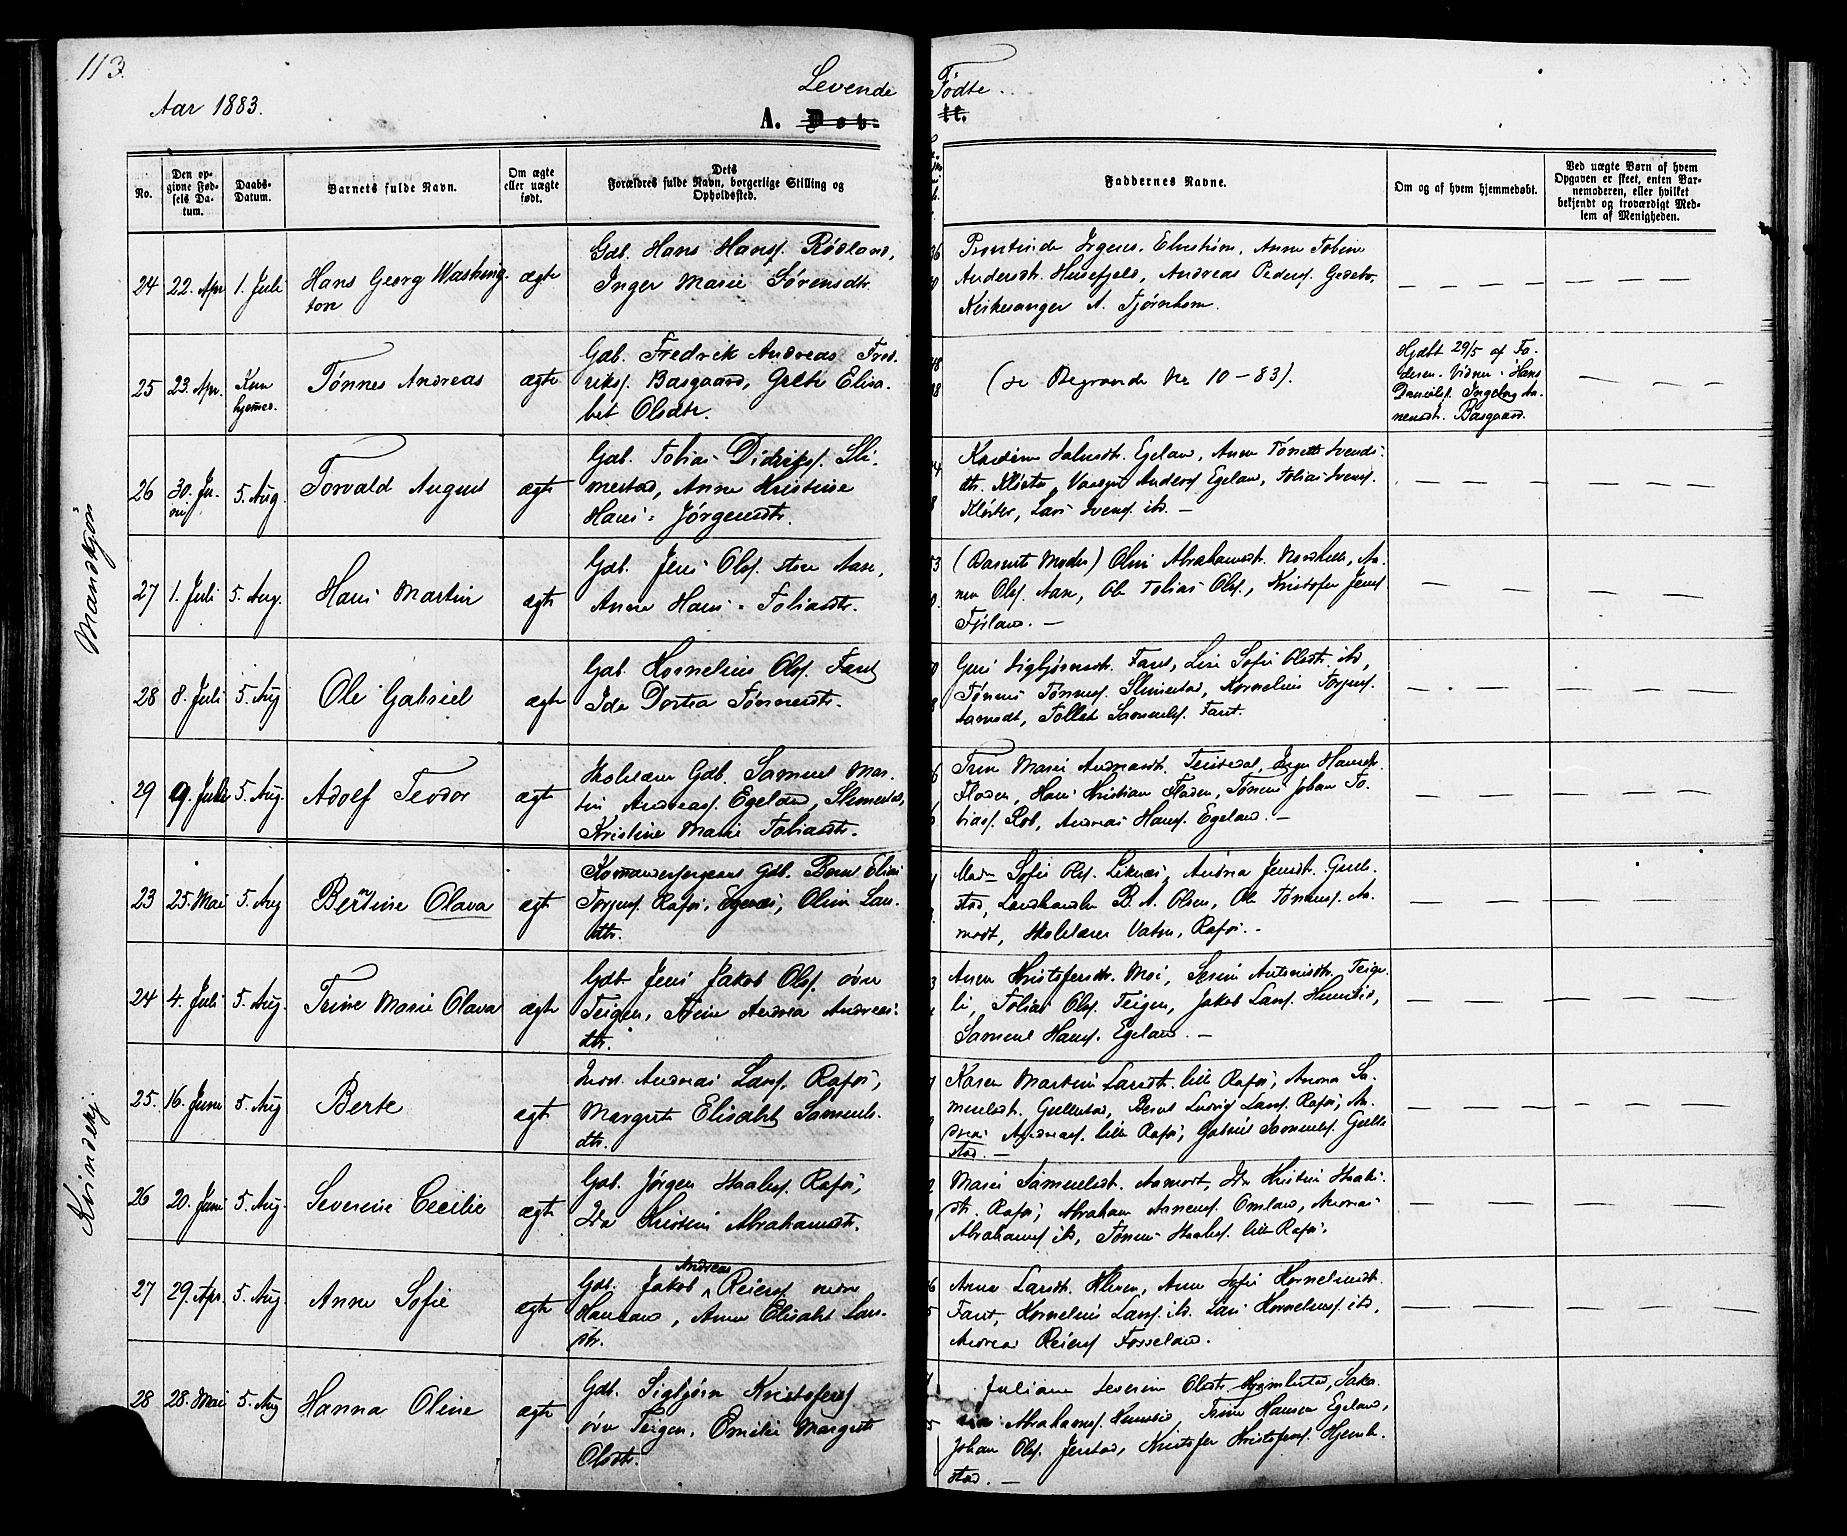 113.
Levende Fødte.
Aar 1883.
A. Døb- te.
No.
Den op-
givne Fød-
sels Da-
tum.
Daabs-
Datum.
Barnets fulde Navn.
Om ægte
eller uægte
født.
Dets
Forældres fulde Navn, borgerlige Stilling og
Opholdssted.
Faddernes Navne.
Om og af hvem hjemmedøbt.
Ved uægte Børn af hvem
Opgaven er skeet, enten Bar-
nemoderen, eller hvilket
bekjendt og troværdigt Med-
lem af Menigheden.
Mandkjøn
24 22. Apr 1. Juli Hans Georg Washing-
ton
ægte
Gdb. Hans Hansf. Rödland,
Inger Marie Sörensdtr.
Anne Tobine
Andersdt. Husefjeld, Andreas Pedersf.
Kirkesanger A. Tjørnhom.
25 23. Apr. Kun
hjemmed.
Tønnes Andreas
ægte
Gdb. Fredrik Andreas Fred-
riksf. Basgaard, Elisa-
bet Olsdtr.
(se Begravede No 10-83).
Hjdbt 29/5 af Fa-
deren. Vidner: Hans
Danielsf. Ingeborg Aa-
nensdt. Basgaard.
26 30. Ju-
ni
5. Aug. Torvald August
ægte
Gdb. Tobias Didriksf. Sli-
mestad, Anne Kristine
Hans-Jørgensdtr.
Egeland, Anne
dtr. Kloster, Egeland, Tobias Svensf.
Kloster, Lars Svensf. ibd. —
27 1. Juli 5. Aug. Hans Martin
ægte
Gdb. Jens Olsf. store Aase,
Anne Hans-Tobiasdtr.
(Barnets Moder) Olene Abrahamsdt. Aa-
nen Olsf. Aase, Ole Tobias Olsf., Kristofer Jensf.
28 8. Juli 5. Aug Ole Gabriel
ægte
Gdb. Kornelius Olsf. Fant
Ida Dortea Tønnesdtr.
Guri Sigbjørnsdt. Fant, Lise Sofie Olsdt. ibd,
Tønnes Tønnesf. Slimestad, Kornelius Torjusf.
Aamodt, Tollak Samuelsf. Fant.
29 9. Juli 5. Aug. Adolf Teodor
ægte
Skolelærer Gdb. Samuel Mar-
tin Andreasf. Egeland, Slimestad,
Kristine Marie Tobiasdtr.
Trine Marie Andreasdt.
Fladen, Hans Kristian Fladen, Tønnes Johan To-
biasf. Rob, Andreas Hansf. Egeland. —
Kvindekj.
23 25. Mai 5. Aug Berntine Olava
ægte
Kommandersergeant Gdb. Bernt Elias
Torjusf. Rafos, Egenæs, Oline Lars-
dtr.
Mad. Sofie Olsf. Liknæs, Andrea Jensdt. Gulle-
stad, Landhandler B. A. Olsen, Ole Tønnesf. Aa-
modt, Skolelærer Vatne, Rafos. —
24 4. Juli 5. Aug. Trine Marie Olava
ægte
Gdb. Jens Jakob Olsf. övre
Teigen, Andrea Andreas-
dtr.
Anne Kristofersdt. Moi, Serine Antonisdt. Teige-
li, Tobias Olsf. Teigen, Jakob Larsf. Hunsbid,
Samuel Hansf. Egeland. —
25. 16. Juni 5. Aug Berte
ægte
Andreas Larsf. Rafos,
Margrete Elisabet Samuels-
dtr.
Karen Martine Larsdt. lille Rafos, Anna Sa-
muelsdt. Gullestad, Bernt Ludvig Larsf. Rafos, An-
dreas Andreasf. lille Rafos, Gabriel Samuelsf. Gulle-
stad. —
26 20. Juni 5. Aug. Severine Cecilie
ægte
Gdb. Jørgen Staalesf. Rafos,
Ida Kristine Abrahamsdtr.
Marie Samuelsdt. Aamodt, Ida Kristine Staales-
dt. Rafos, Abraham Aanensf. Omland, Andreas
Abrahamsf. ibd, Tønnes Staalesf. lille Rafos.
27 29. Apr. 5. Aug. Anne Sofie
ægte
Gdb. Jakob Andreas Reiersf. nedre
Haugland, Anne Elisabet Lars-
dtr.
Anna Larsdt. Kleven, Anne Sofie Korneliusdt.
Fant, Kornelius Larsf. ibd. Lars Korneliusf. ibd,
Andreas Reiersf. Fosseland.
28 28. Mai 5. Aug Hanna Oline
ægte
Gdb. Sigbjørn Kristofersf.
övre Teigen, Emilie Margrete
Olsdtr.
Juliane Severine Olsdtr. Saka-
rias Abrahamsf. Hunsbid, Trine Hansen Egeland,
Johan Olsf. Jerstad, Kristofer Kristofersf. Hjemle-
stad. —